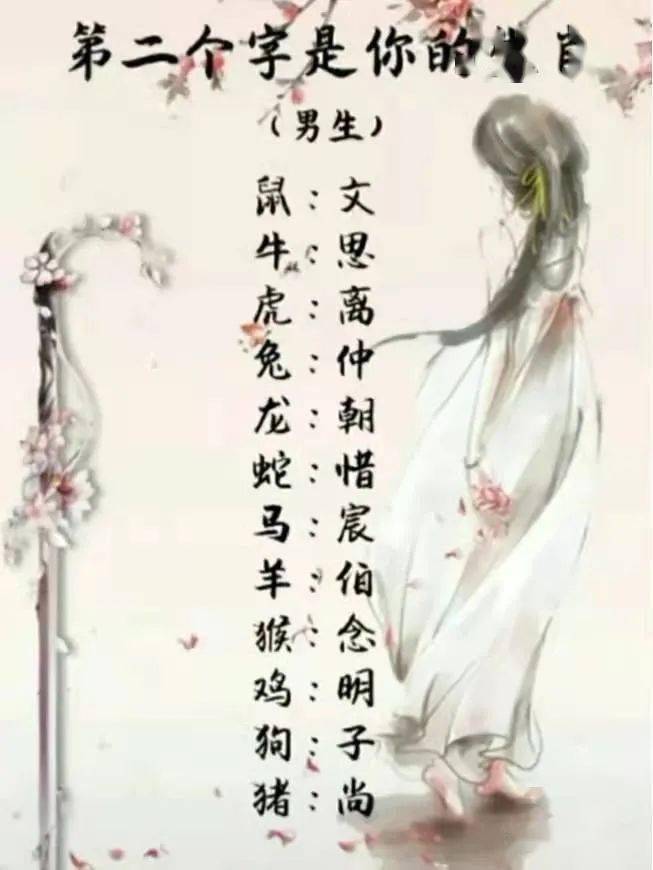 第二个字是你的生肖
（男生）
鼠：文
牛：思
虎：离
兔：仲
龙：朝
蛇：惜
马：宸
羊：伯
猴：念
鸡：明
狗：子
猪：尚